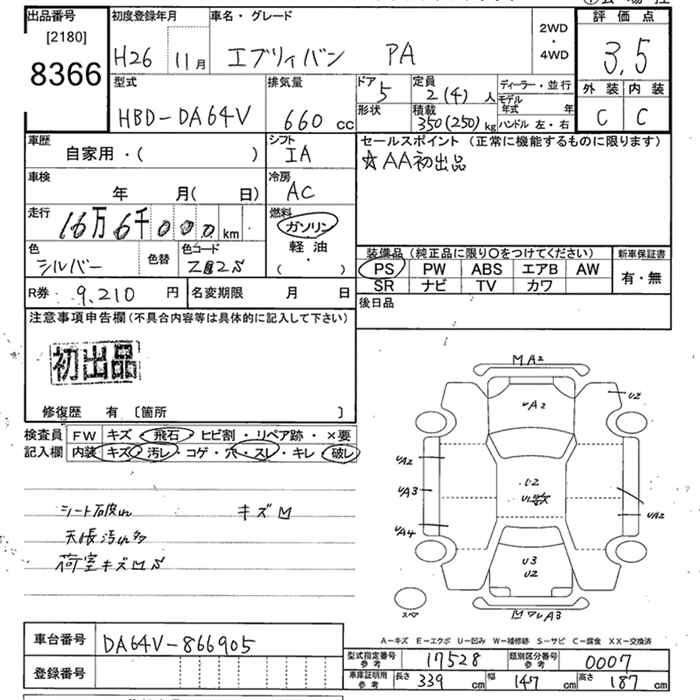 出品番号 初度登録年月 車名・グレード 2WD・4WD 評価点
[2180]
8366 H26 11月 エブリイバン PA 3.5
型式 排気量 ドア 定員 ディーラー・並行 外装 内装
HBD-DA64V 660cc 5 2(4)人 モデル年式 年 C C
形状 積載 350(250)kg ハンドル 左・右
車歴 シフト セールスポイント (正常に機能するものに限ります)
自家用・( ) IA ☆AA初出品
車検 冷房
年 月( 日) AC
走行 16万6千000km 燃料
ガソリン
色 色替 色コード 軽油 装備品 (純正品に限り○をつけてください) 新車保証書
シルバー Z2S ・( ) PS PW ABS エアB AW 有・無
SR ナビ TV カワ
R券 9,210円 名変期限 月 日 後日品
注意事項申告欄(不具合内容等は具体的に記入して下さい)
初出品
修復歴 有 〔箇所 〕
検査員 FW キズ・飛石・ヒビ割・リペア跡・×要
記入欄 内装 キズ・汚レ・コゲ・穴・スレ・キレ・破レ
シート破れ キズM
天張汚れ多
荷室キズMS
MA2
UA2
U2
UA2
UA3
UA4
UA2
U3
U2
スペア
A-キズ E-エクボ U-凹み W-補修跡 S-サビ C-腐食 XX-交換済
車台番号 DA64V-866905
型式指定番号 参考 17528 類別区分番号 参考 0007
登録番号
車庫証明用 参考 長さ 339cm 幅 147cm 高さ 187cm